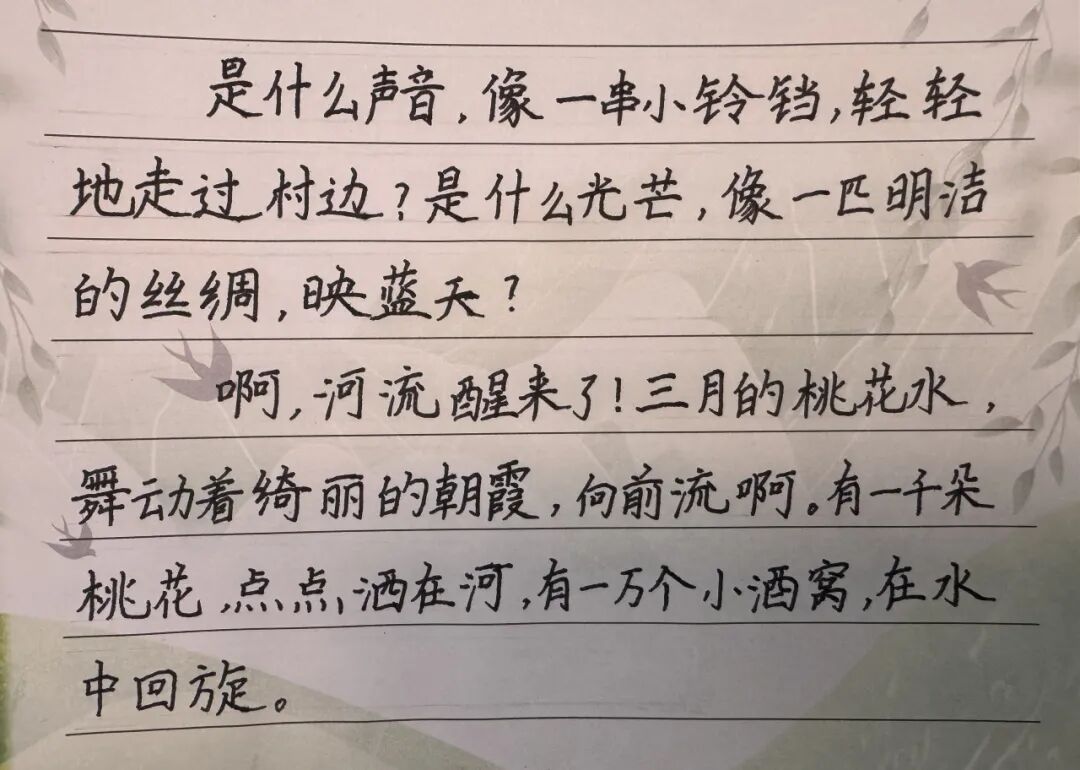 是什么声音,像一串小铃铛,轻轻
地走过村边?是什么光芒,像一匹明洁
的丝绸,映蓝天?
啊,河流醒来了!三月的桃花水,
舞动着绮丽的朝霞,向前流啊。有一千朵
桃花,点点洒在河,有一万个小酒窝,在水
中回旋。